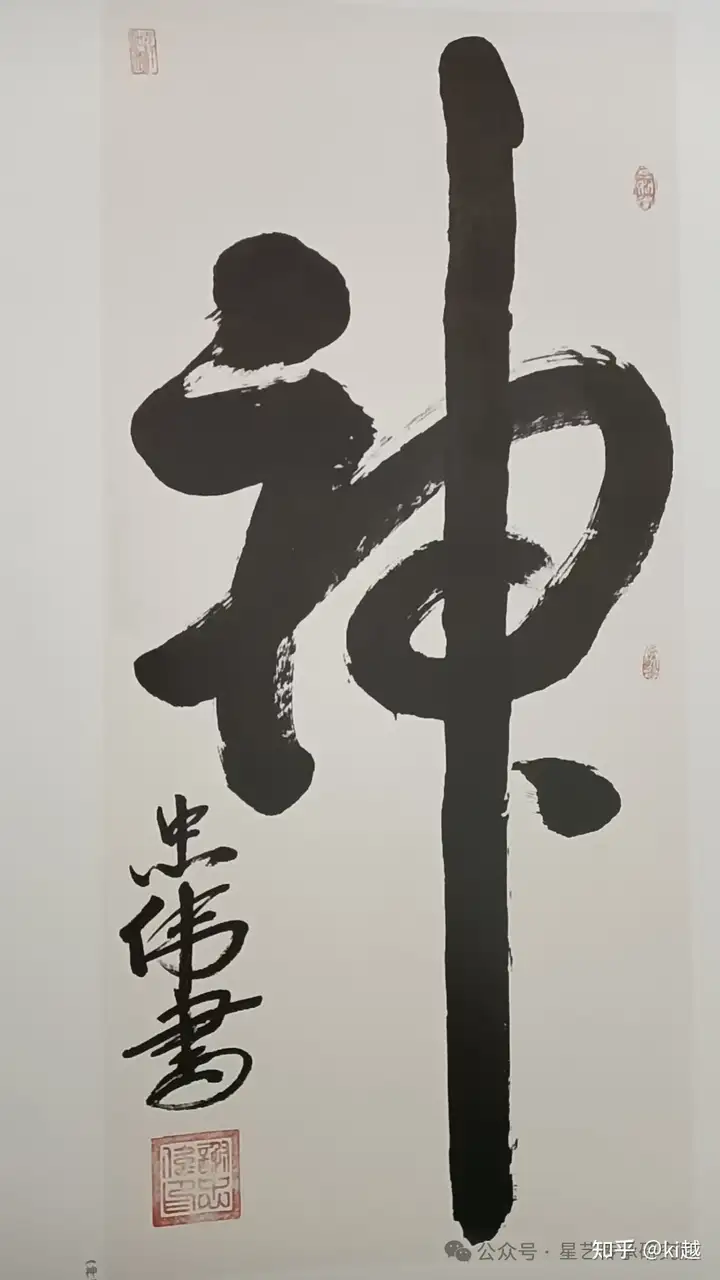 神
忠伟書
公众号·星艺
知乎 @ki越